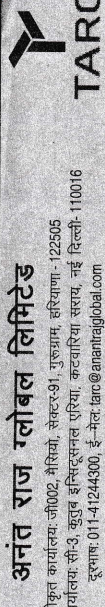 TARC
अनंत राज ग्लोबल लिमिटेड
कृत कार्यालयः जी002, मैसियो, सेक्टर-91, गुरूग्राम, हरियाणा - 122505
र्यालयः सी-3, कुतुब इन्सिटूसनल एरिया, कटवारिया सराय, नई दिल्ली- 110016
दूरभाषः 011-41244300, ई-मेलः tarc@anantrajglobal.com